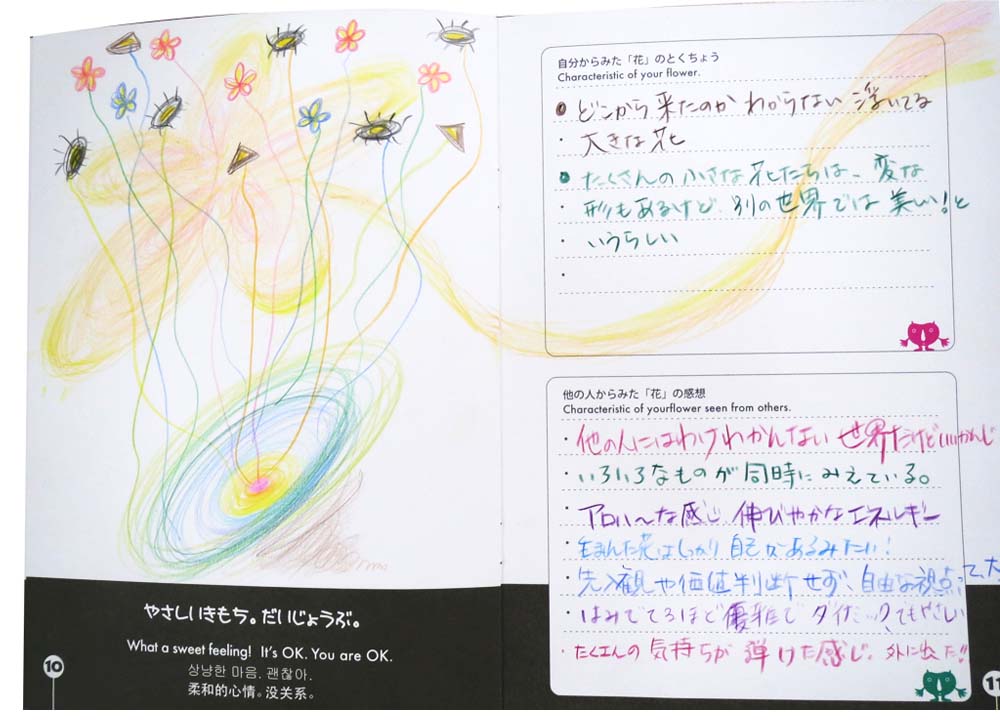 やさしいきもち。だいじょうぶ。
What a sweet feeling! It's OK. You are OK.
상냥한 마음. 괜찮아.
柔和的心情。没关系。
10
自分からみた「花」のとくちょう
Characteristic of your flower.
どこから来たのか わからない 浮いてる
大きな花
たくさんの小さな花たちは、変な
形もあるけど、別の世界では美しい!と
いうらしい
他の人からみた「花」の感想
Characteristic of yourflower seen from others.
他の人にはわけわかんない世界だけどいいかんじ
いろいろなものが同時にみえている。
アロハ〜な感じ 伸びやかなエネルギー
花はしっかり自己があるみたい!
先入観や価値判断せず、自由な視点って、大
はみでてるほど優雅で ダイナミック、でもやさしい
たくさんの気持ちが弾けた感じ。外に出た!!
11